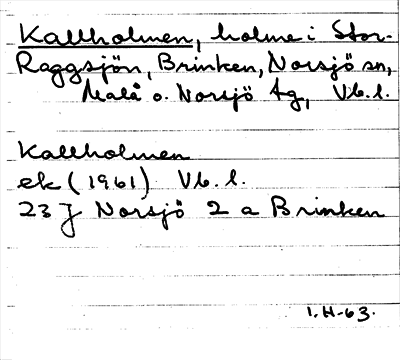 Kallholmen, holme i Stor-
Raggsjön, Brinken, Norsjö sn,
Malå o. Norsjö tg, Vb. l.
Kallholmen
ek (1961) Vb. l.
23 J Norsjö 2 a Brinken
I. H-63.